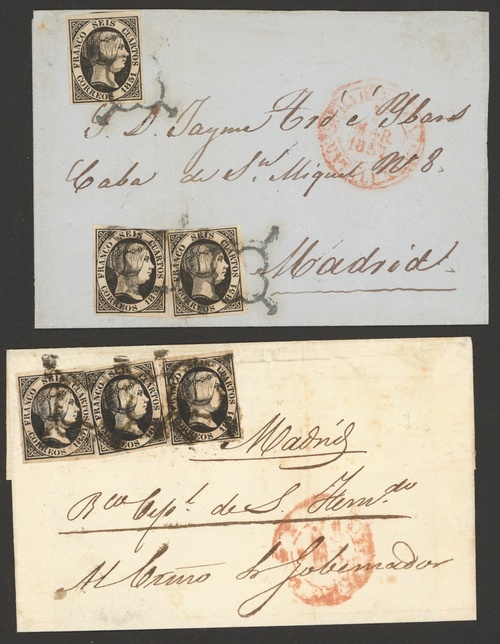 FRANCO SEIS CUARTOS
CORREOS 1851
S. D. Jayme Aro é Ybars
Caba de Sn. Miguel Nº 8.
FRANCO SEIS CUARTOS
CORREOS 1851
FRANCO SEIS CUARTOS
CORREOS 1851
Madrid
FRANCO SEIS CUARTOS
CORREOS 1851
FRANCO SEIS CUARTOS
CORREOS 1851
FRANCO SEIS CUARTOS
CORREOS 1851
Madrid
de S. Fern.do
Al Exmo Sr Gobernador